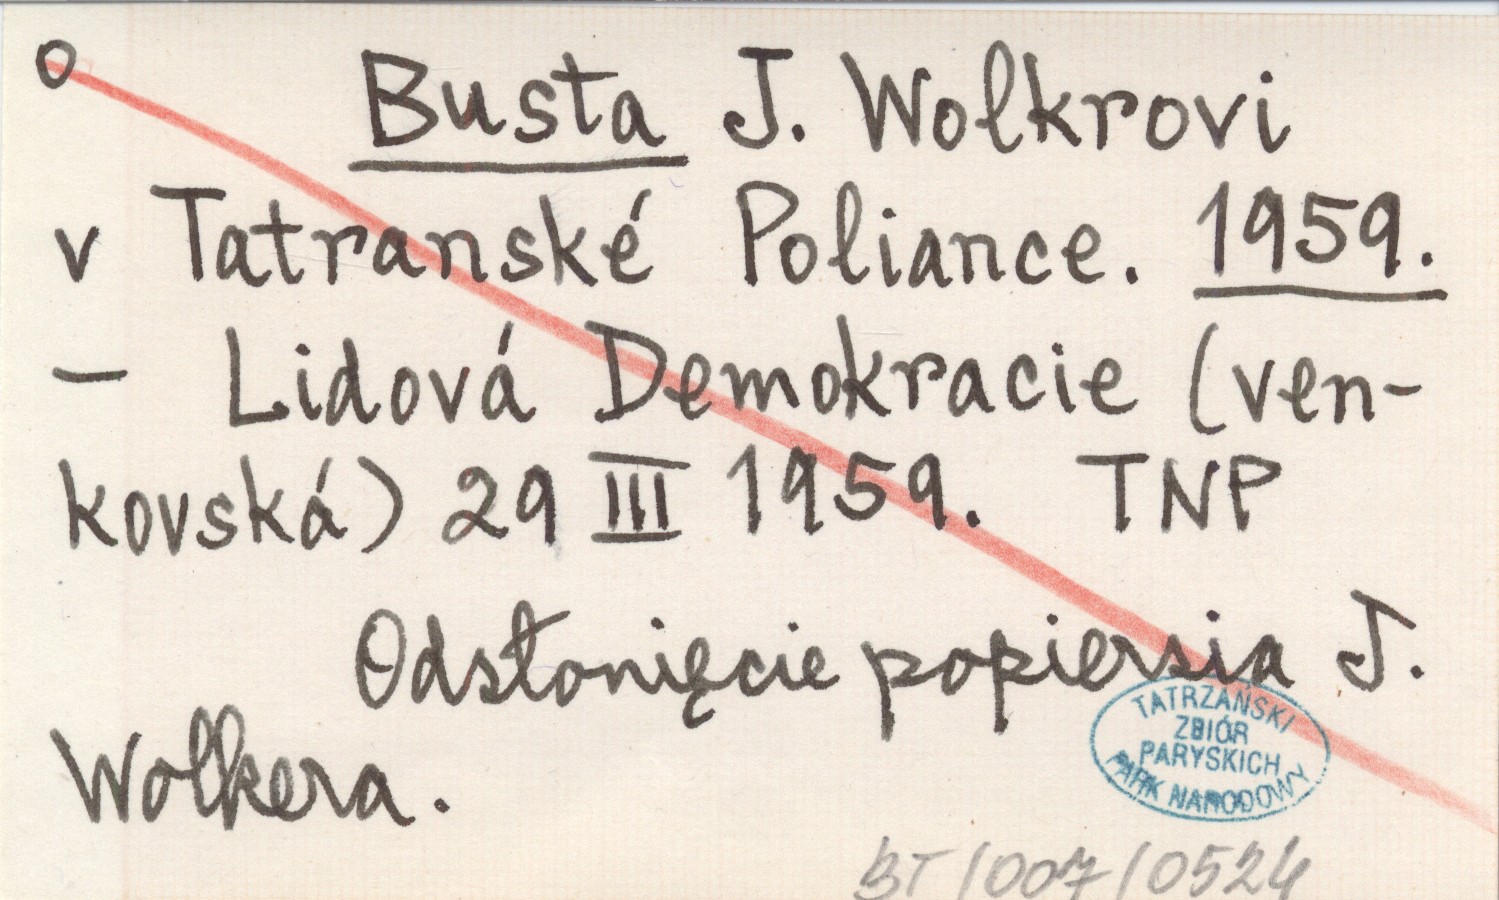 o Busta J. Wolkrovi
v Tatranské Poliance. 1959.
— Lidová Demokracie (ven-
kovská) 29 III 1959. TNP
Odsłonięcie popiersia J.
Wolkera.
TATRZAŃSKI
ZBIÓR
PARYSKICH
PARK NARODOWY
BT/007/0524